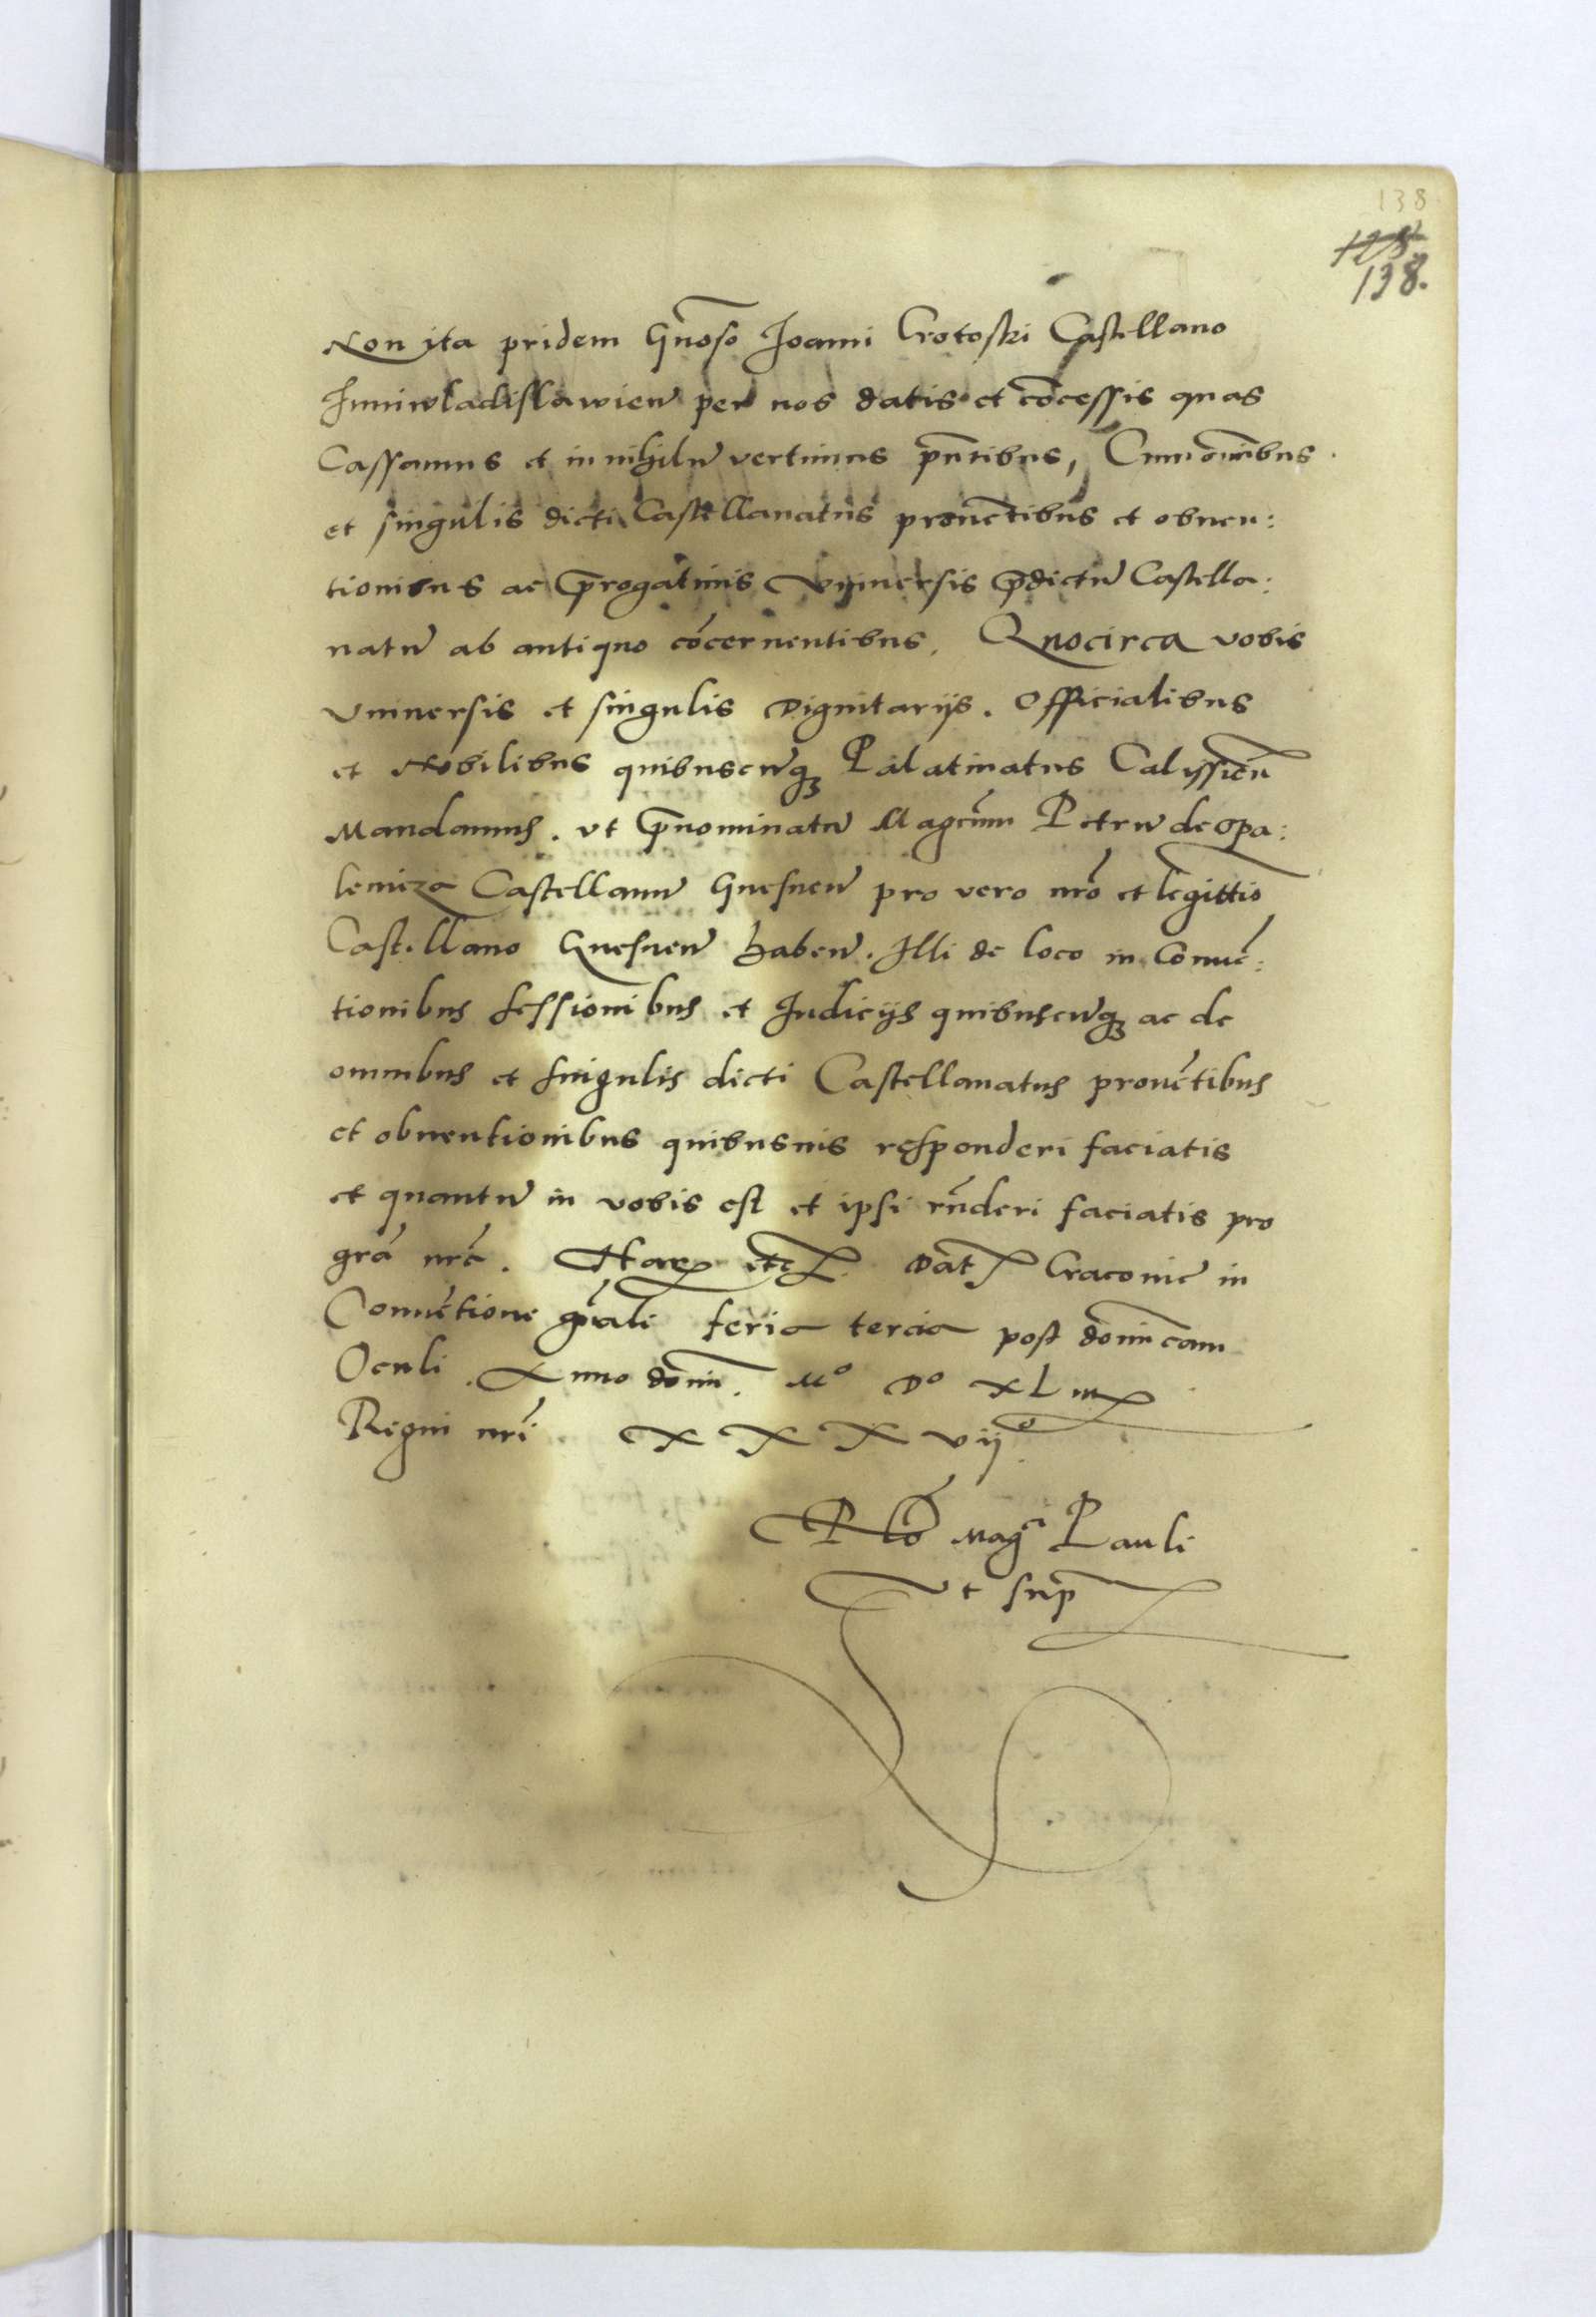 138
125
138.
Non ita pridem Gnoso Joanni Crotoski Castellano
Inniwladislawien per nos datis et concessis quas
Cassamus et in nihilu vertimus pntibus, Cum omibus
et singulis dicti Castellanatus prouetibus et obuen:
tionibus ac progatiuis Vniuersis pdictu Castella:
natu ab antiquo cocernentibus. Quocirca vobis
Vniuersis et singulis Dignitarijs. Officialibus
et Nobilibus quibuscuq Palatinatus Calissien
Mandamus. vt pnominatu Magcum Petru de Opa:
lenicza Castellanu Gnesnen pro vero nro et legittio
Castellano Gnesnen haben. Illi de loco in Conue:
tionibus sessionibus et Iudicijs quibuscuq ac de
omnibus et singulis dicti Castellanatus prouetibus
et obuentionibus quibusuis responderi faciatis
et quantu in vobis est et ipsi rnderi faciatis pro
gra nra. Har etc. Dat Cracouie in
Conuetione gnali feria tercia post domicam
Oculi. Anno domi. Mo Do XLiii
Regni nri XXXvii
Rlo Magci Pauli
vt sup